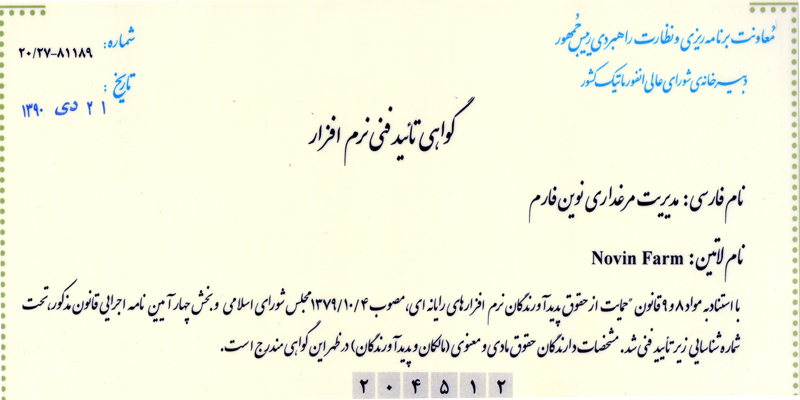 معاونت برنامه ریزی و نظارت راهبردی رییس جمهور
دبیرخانه‌ی شورای عالی انفورماتیک کشور
شماره: ۲۰/۲۷-۸۱۱۸۹
تاریخ:
۲۱ دی ۱۳۹۰
گواهی تائید فنی نرم افزار
نام فارسی: مدیریت مرغداری نوین فارم
نام لاتین: Novin Farm
با استناد به مواد ۸ و ۹ قانون "حمایت از حقوق پدیدآورندگان نرم افزارهای رایانه ای، مصوب ۱۳۷۹/۱۰/۴ مجلس شورای اسلامی و بخش چهار آیین نامه اجرایی قانون مذکور، تحت
شماره شناسایی زیر تأیید فنی شد. مشخصات دارندگان حقوق مادی و معنوی (مالکان و پدیدآورندگان) در ظهر این گواهی مندرج است.
۲۰۴۵۱۲